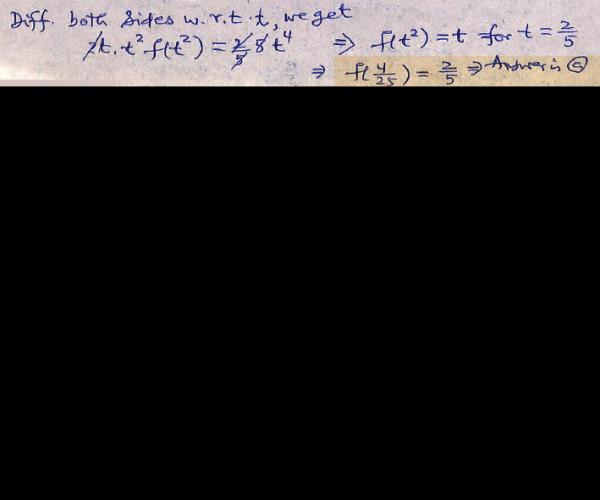 Diff. both sides w.r.t. t, we get
2t. t² f(t²) = 2/5 5 t⁴ ⇒ f(t²) = t for t = 2/5
⇒ f(4/25) = 2/5 ⇒ Answer is